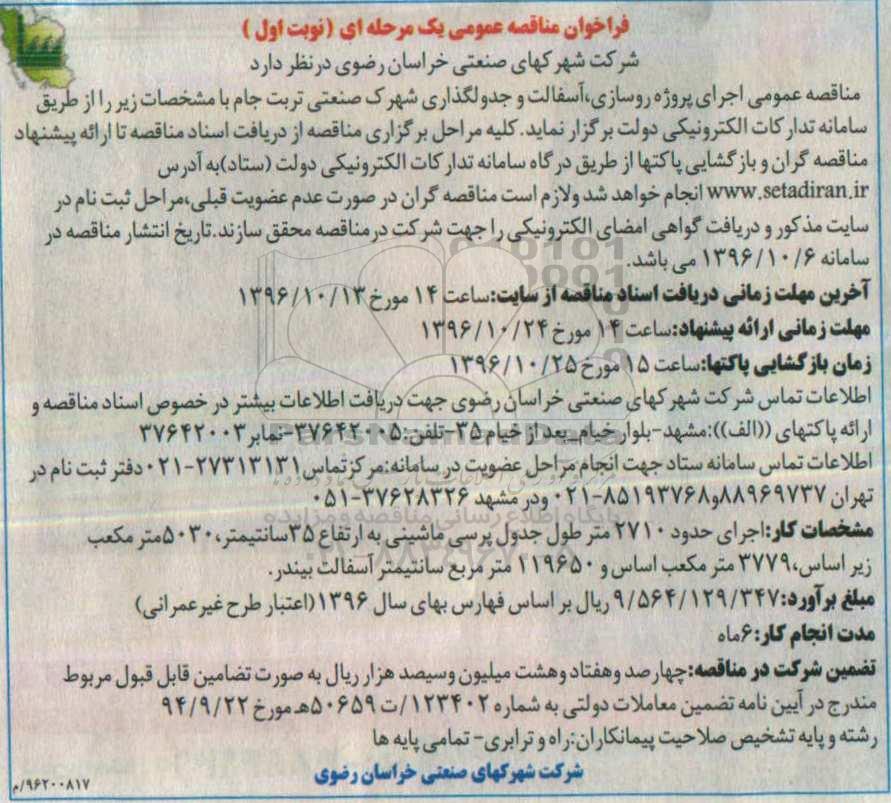 فراخوان مناقصه عمومی یک مرحله ای (نوبت اول)
شرکت شهرکهای صنعتی خراسان رضوی درنظر دارد
مناقصه عمومی اجرای پروژه روسازی،آسفالت و جدولگذاری شهرک صنعتی تربت جام با مشخصات زیر را از طریق
سامانه تدارکات الکترونیکی دولت برگزار نماید.کلیه مراحل برگزاری مناقصه از دریافت اسناد مناقصه تا ارائه پیشنهاد
مناقصه گران و بازگشایی پاکتها از طریق درگاه سامانه تدارکات الکترونیکی دولت (ستاد)به آدرس
www.setadiran.ir انجام خواهد شد ولازم است مناقصه گران در صورت عدم عضویت قبلی،مراحل ثبت نام در
سایت مذکور و دریافت گواهی امضای الکترونیکی را جهت شرکت درمناقصه محقق سازند.تاریخ انتشار مناقصه در
سامانه ۱۳۹۶/۱۰/۶ می باشد.
آخرین مهلت زمانی دریافت اسناد مناقصه از سایت:ساعت ۱۴ مورخ ۱۳۹۶/۱۰/۱۳
مهلت زمانی ارائه پیشنهاد:ساعت ۱۴ مورخ ۱۳۹۶/۱۰/۲۴
زمان بازگشایی پاکتها:ساعت ۱۵ مورخ ۱۳۹۶/۱۰/۲۵
اطلاعات تماس شرکت شهرکهای صنعتی خراسان رضوی جهت دریافت اطلاعات بیشتر در خصوص اسناد مناقصه و
ارائه پاکتهای ((الف)):مشهد-بلوار خیام_بعد از خیام ۳۵-تلفن:۳۷۶۴۲۰۰۵-نمابر۳۷۶۴۲۰۰۳
اطلاعات تماس سامانه ستاد جهت انجام مراحل عضویت در سامانه:مرکزتماس ۲۷۳۱۳۱۳۱-۰۲۱ دفتر ثبت نام در
تهران ۸۸۹۶۹۷۳۷و۸۵۱۹۳۷۶۸-۰۲۱ ودر مشهد ۳۷۶۲۸۳۲۶-۰۵۱
مشخصات کار:اجرای حدود ۲۷۱۰ متر طول جدول پرسی ماشینی به ارتفاع ۳۵سانتیمتر،۵۰۳۰متر مکعب
زیر اساس،۳۷۷۹ متر مکعب اساس و ۱۱۹۶۵۰ متر مربع سانتیمتر آسفالت بیندر.
مبلغ برآورد:۹/۵۶۴/۱۲۹/۳۴۷ ریال بر اساس فهارس بهای سال ۱۳۹۶(اعتبار طرح غیرعمرانی)
مدت انجام کار:۶ماه
تضمین شرکت در مناقصه:چهارصد وهفتاد وهشت میلیون وسیصد هزار ریال به صورت تضامین قابل قبول مربوط
مندرج در آیین نامه تضمین معاملات دولتی به شماره ۱۲۳۴۰۲/ت ۵۰۶۵۹هـ مورخ ۹۴/۹/۲۲
رشته و پایه تشخیص صلاحیت پیمانکاران:راه و ترابری- تمامی پایه ها
شرکت شهرکهای صنعتی خراسان رضوی
۹۶۲۰۰۸۱۷/م